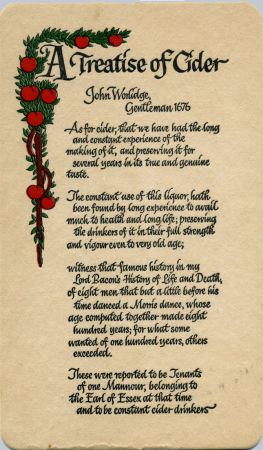 A Treatise of Cider
John Worlidge,
Gentleman 1676
As for cider, that we have had the long
and constant experience of the
making of it, and preserving it for
several years in its true and genuine
taste.
The constant use of this liquor, hath
been found by long experience to avail
much to health and long life; preserving
the drinkers of it in their full strength
and vigour even to very old age;
witness that famous history in my
Lord Bacon's History of Life and Death,
of eight men that but a little before his
time danced a Morris dance, whose
age computed together made eight
hundred years; for what some
wanted of one hundred years, others
exceeded.
These were reported to be Tenants
of one Mannour, belonging to
the Earl of Essex at that time
and to be constant cider drinkers